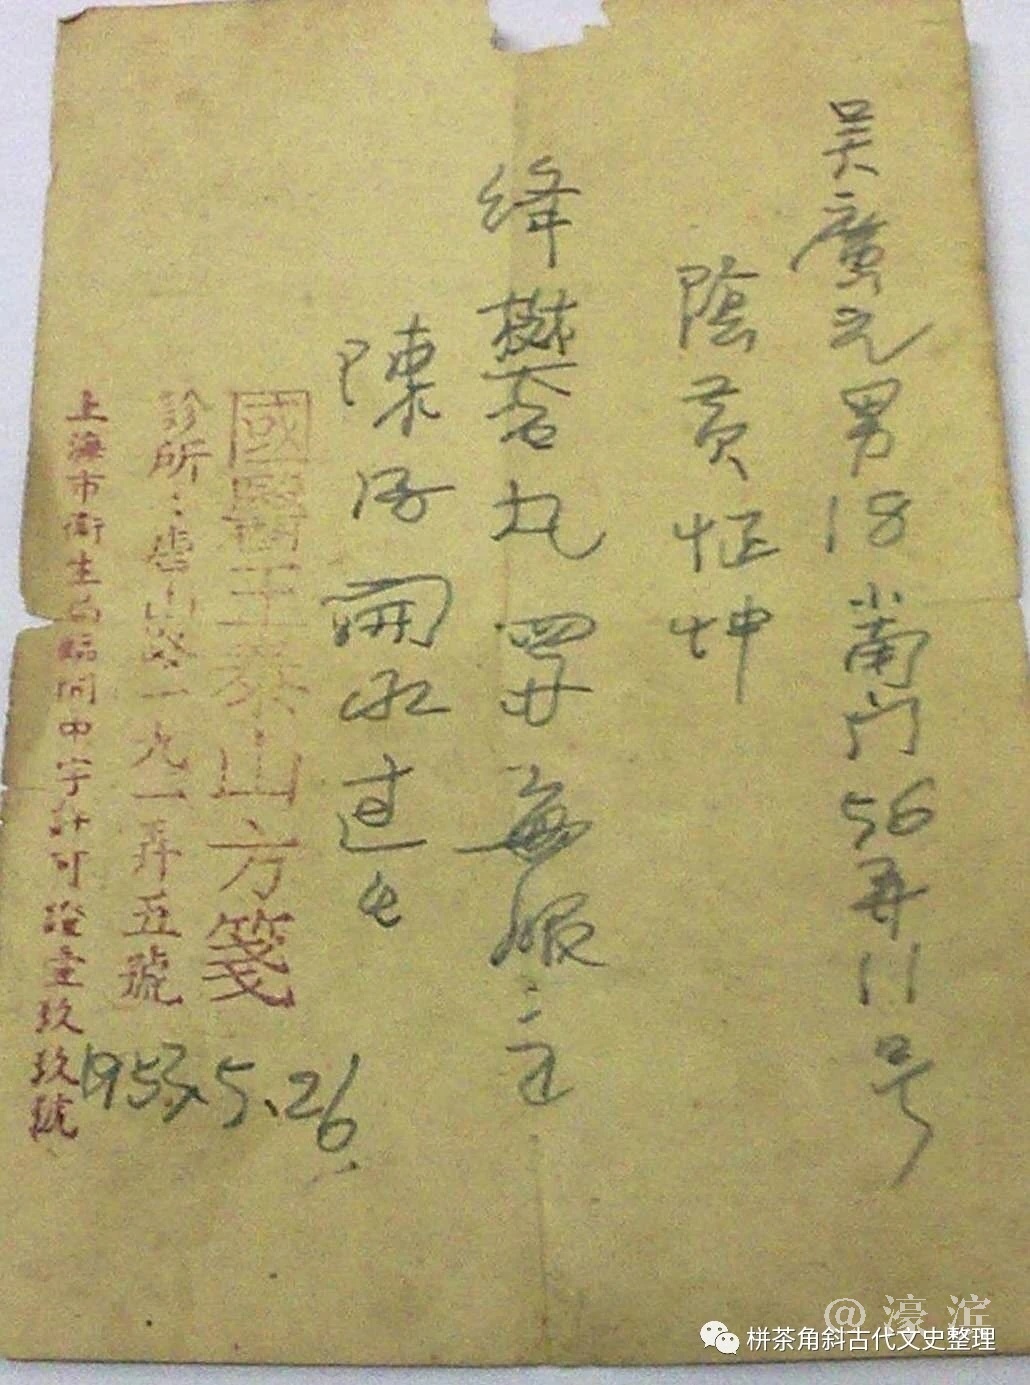 吳廣元男18小南门56弄11号
陰黃怔忡
絳礬丸 四廿 每服二
陳 開水过
國醫王泰山方箋
診所：唐山路一九一弄五號
上海市衛生局臨同中字許可證壹玖玖號
1953.5.26
@濠滨
栟茶角斜古代文史整理